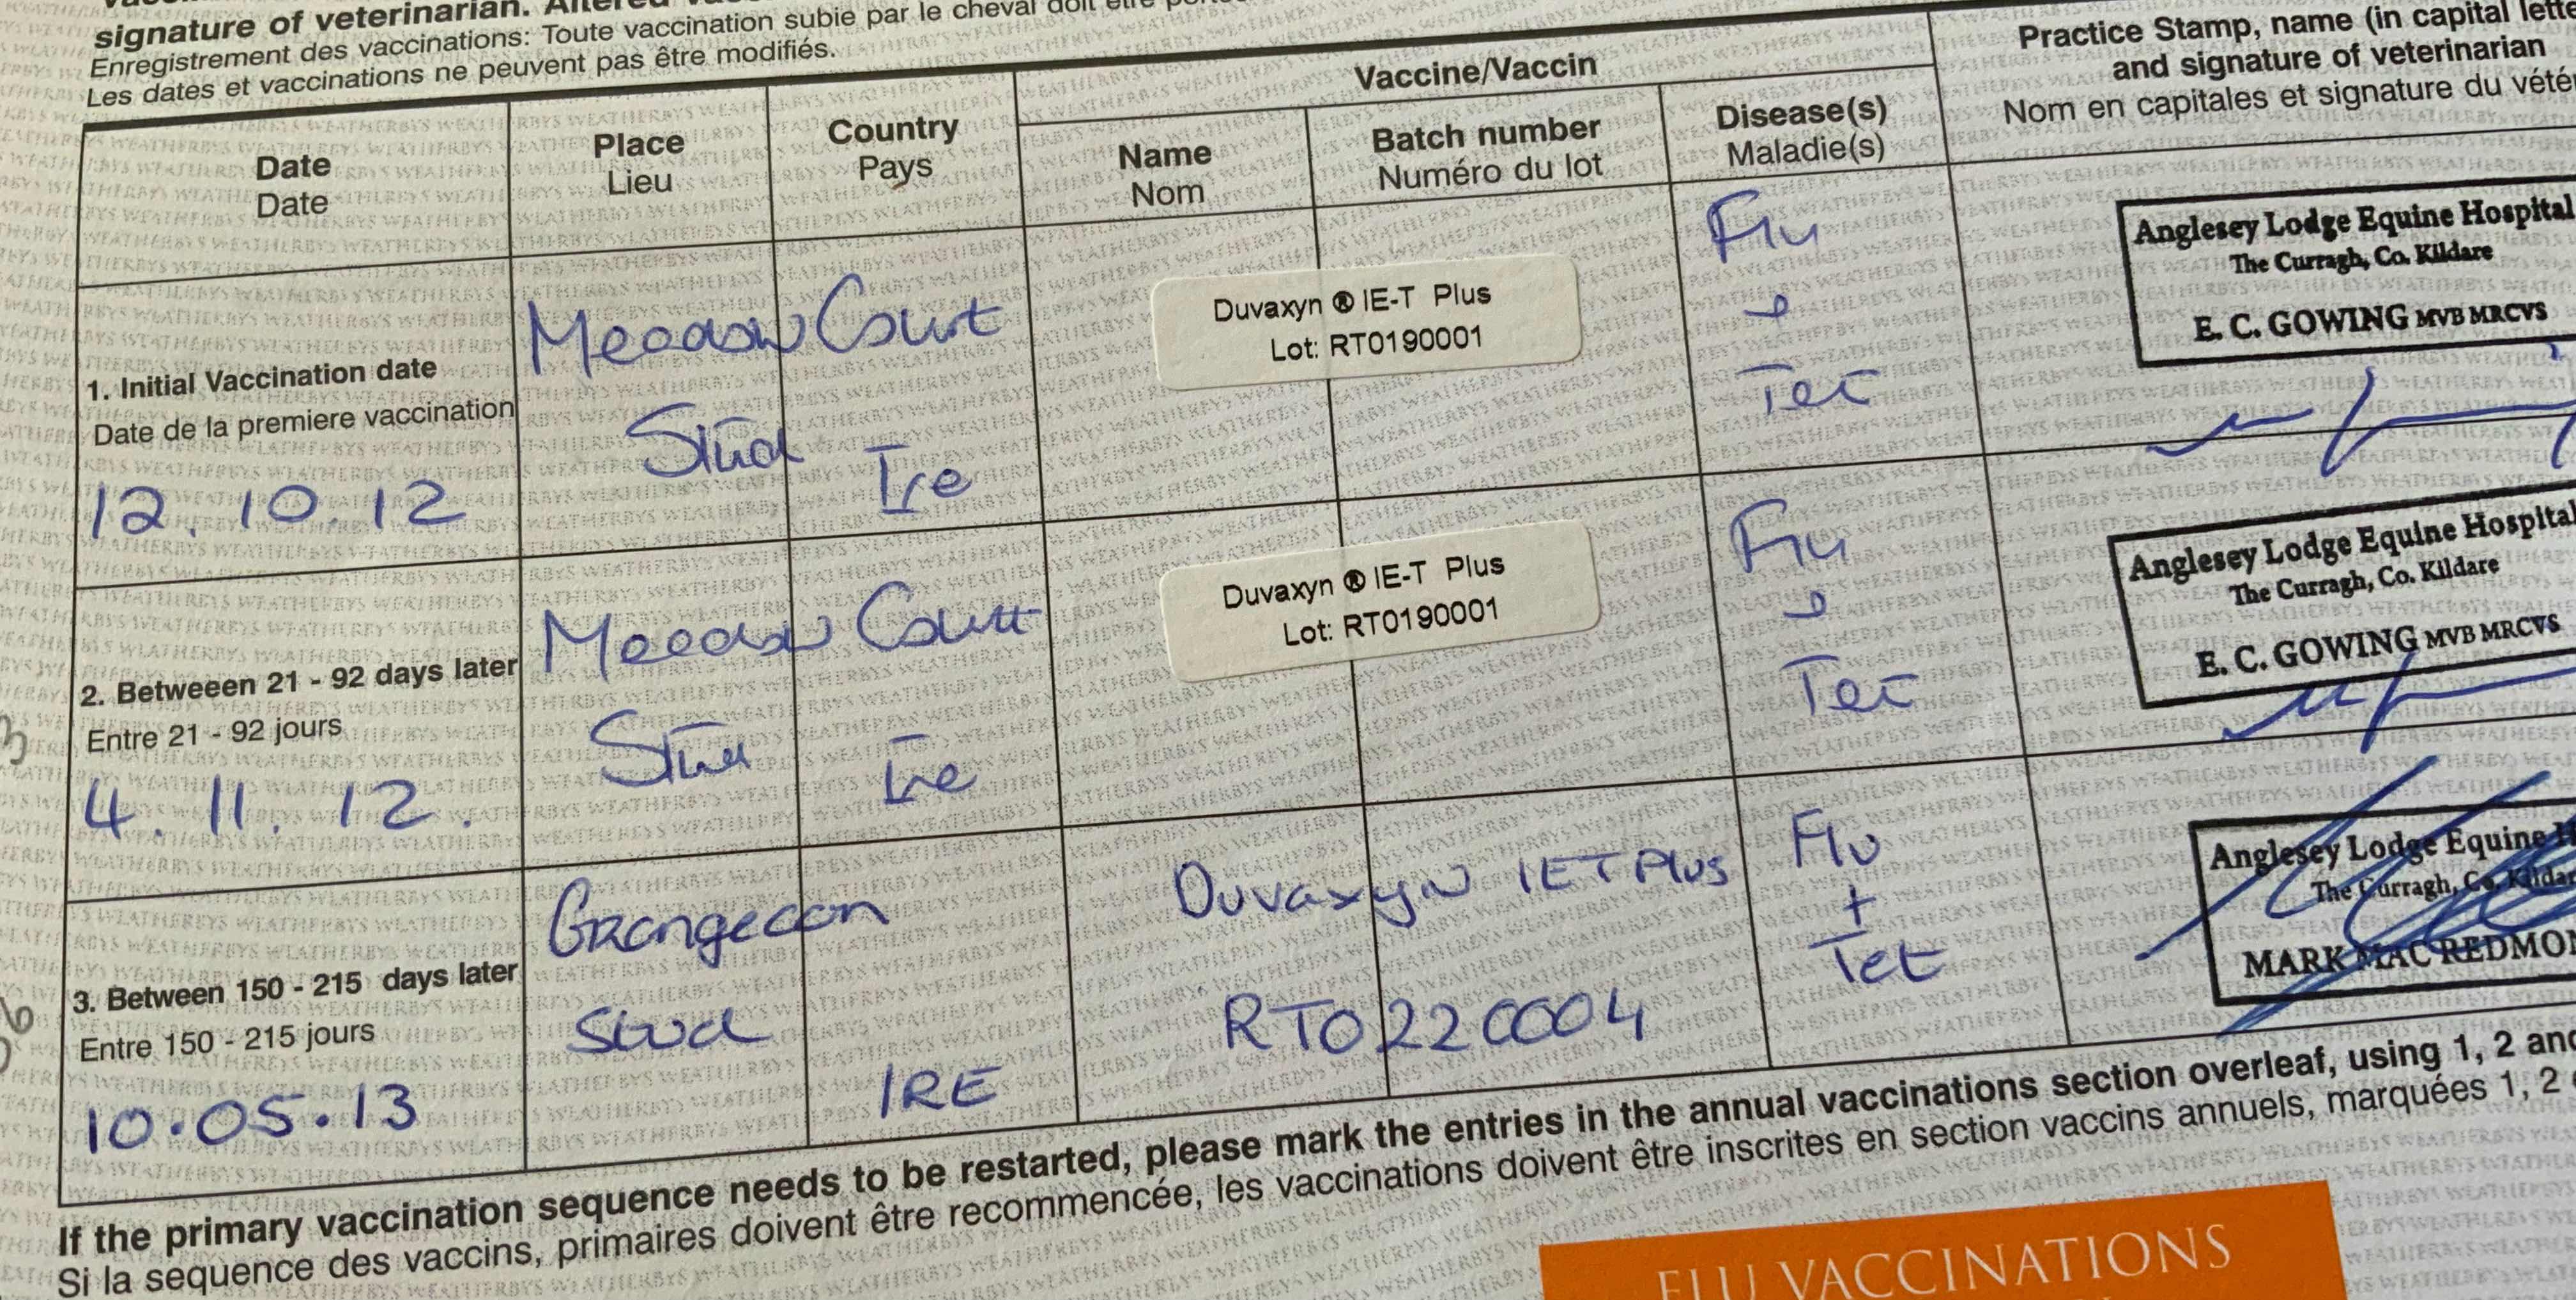 signature of veterinarian.
Enregistrement des vaccinations: Toute vaccination subie par le cheval doit être
Les dates et vaccinations ne peuvent pas être modifiés.
Date
Date
Place
Lieu
Country
Pays
Vaccine/Vaccin
Name
Nom
Batch number
Numéro du lot
Disease(s)
Maladie(s)
Practice Stamp, name (in capital
and signature of veterinarian
Nom en capitales et signature du
1. Initial Vaccination date
Date de la premiere vaccination
12.10.12
Meadow Court
Stud
Ire
Duvaxyn ® IE-T Plus
Lot: RT0190001
Flu
Tet
Anglesey Lodge Equine Hospital
The Curragh, Co. Kildare
E. C. GOWING MVB MRCVS
2. Betweeen 21 - 92 days later
Entre 21 - 92 jours
4.11.12.
Meadow Court
Stud
Ire
Duvaxyn ® IE-T Plus
Lot: RT0190001
Flu
Tet
Anglesey Lodge Equine Hospital
The Curragh, Co. Kildare
E. C. GOWING MVB MRCVS
3. Between 150 - 215 days later
Entre 150 - 215 jours
10.05.13
Grangecon
Stud
IRE
Duvaxyn IET Plus
RT0220004
Flu
+
Tet
Anglesey Lodge Equine
The Curragh, Co. Kildar
MARK MAC REDMON
If the primary vaccination sequence needs to be restarted, please mark the entries in the annual vaccinations section overleaf, using 1, 2 and
Si la sequence des vaccins, primaires doivent être recommencée, les vaccinations doivent être inscrites en section vaccins annuels, marquées 1, 2
FLU VACCINATIONS